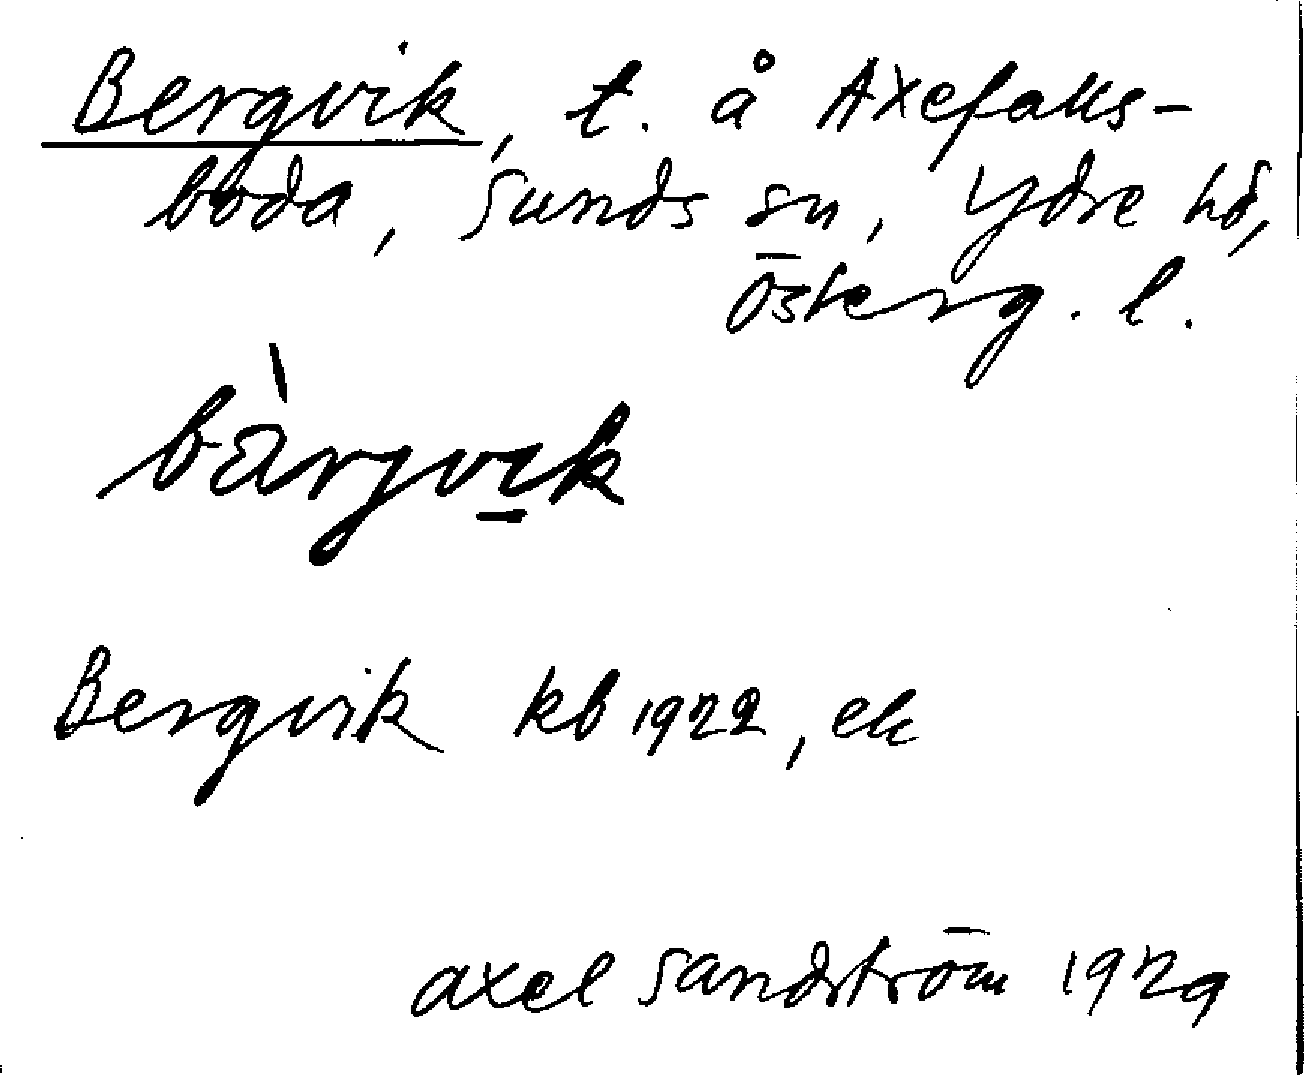 Bergvik, t. å Axefalls-
boda, Sunds sn, Ydre hd,
Österg. l.
bàrgvik
Bergvik kb 1922, ek
axel Sandström 1929